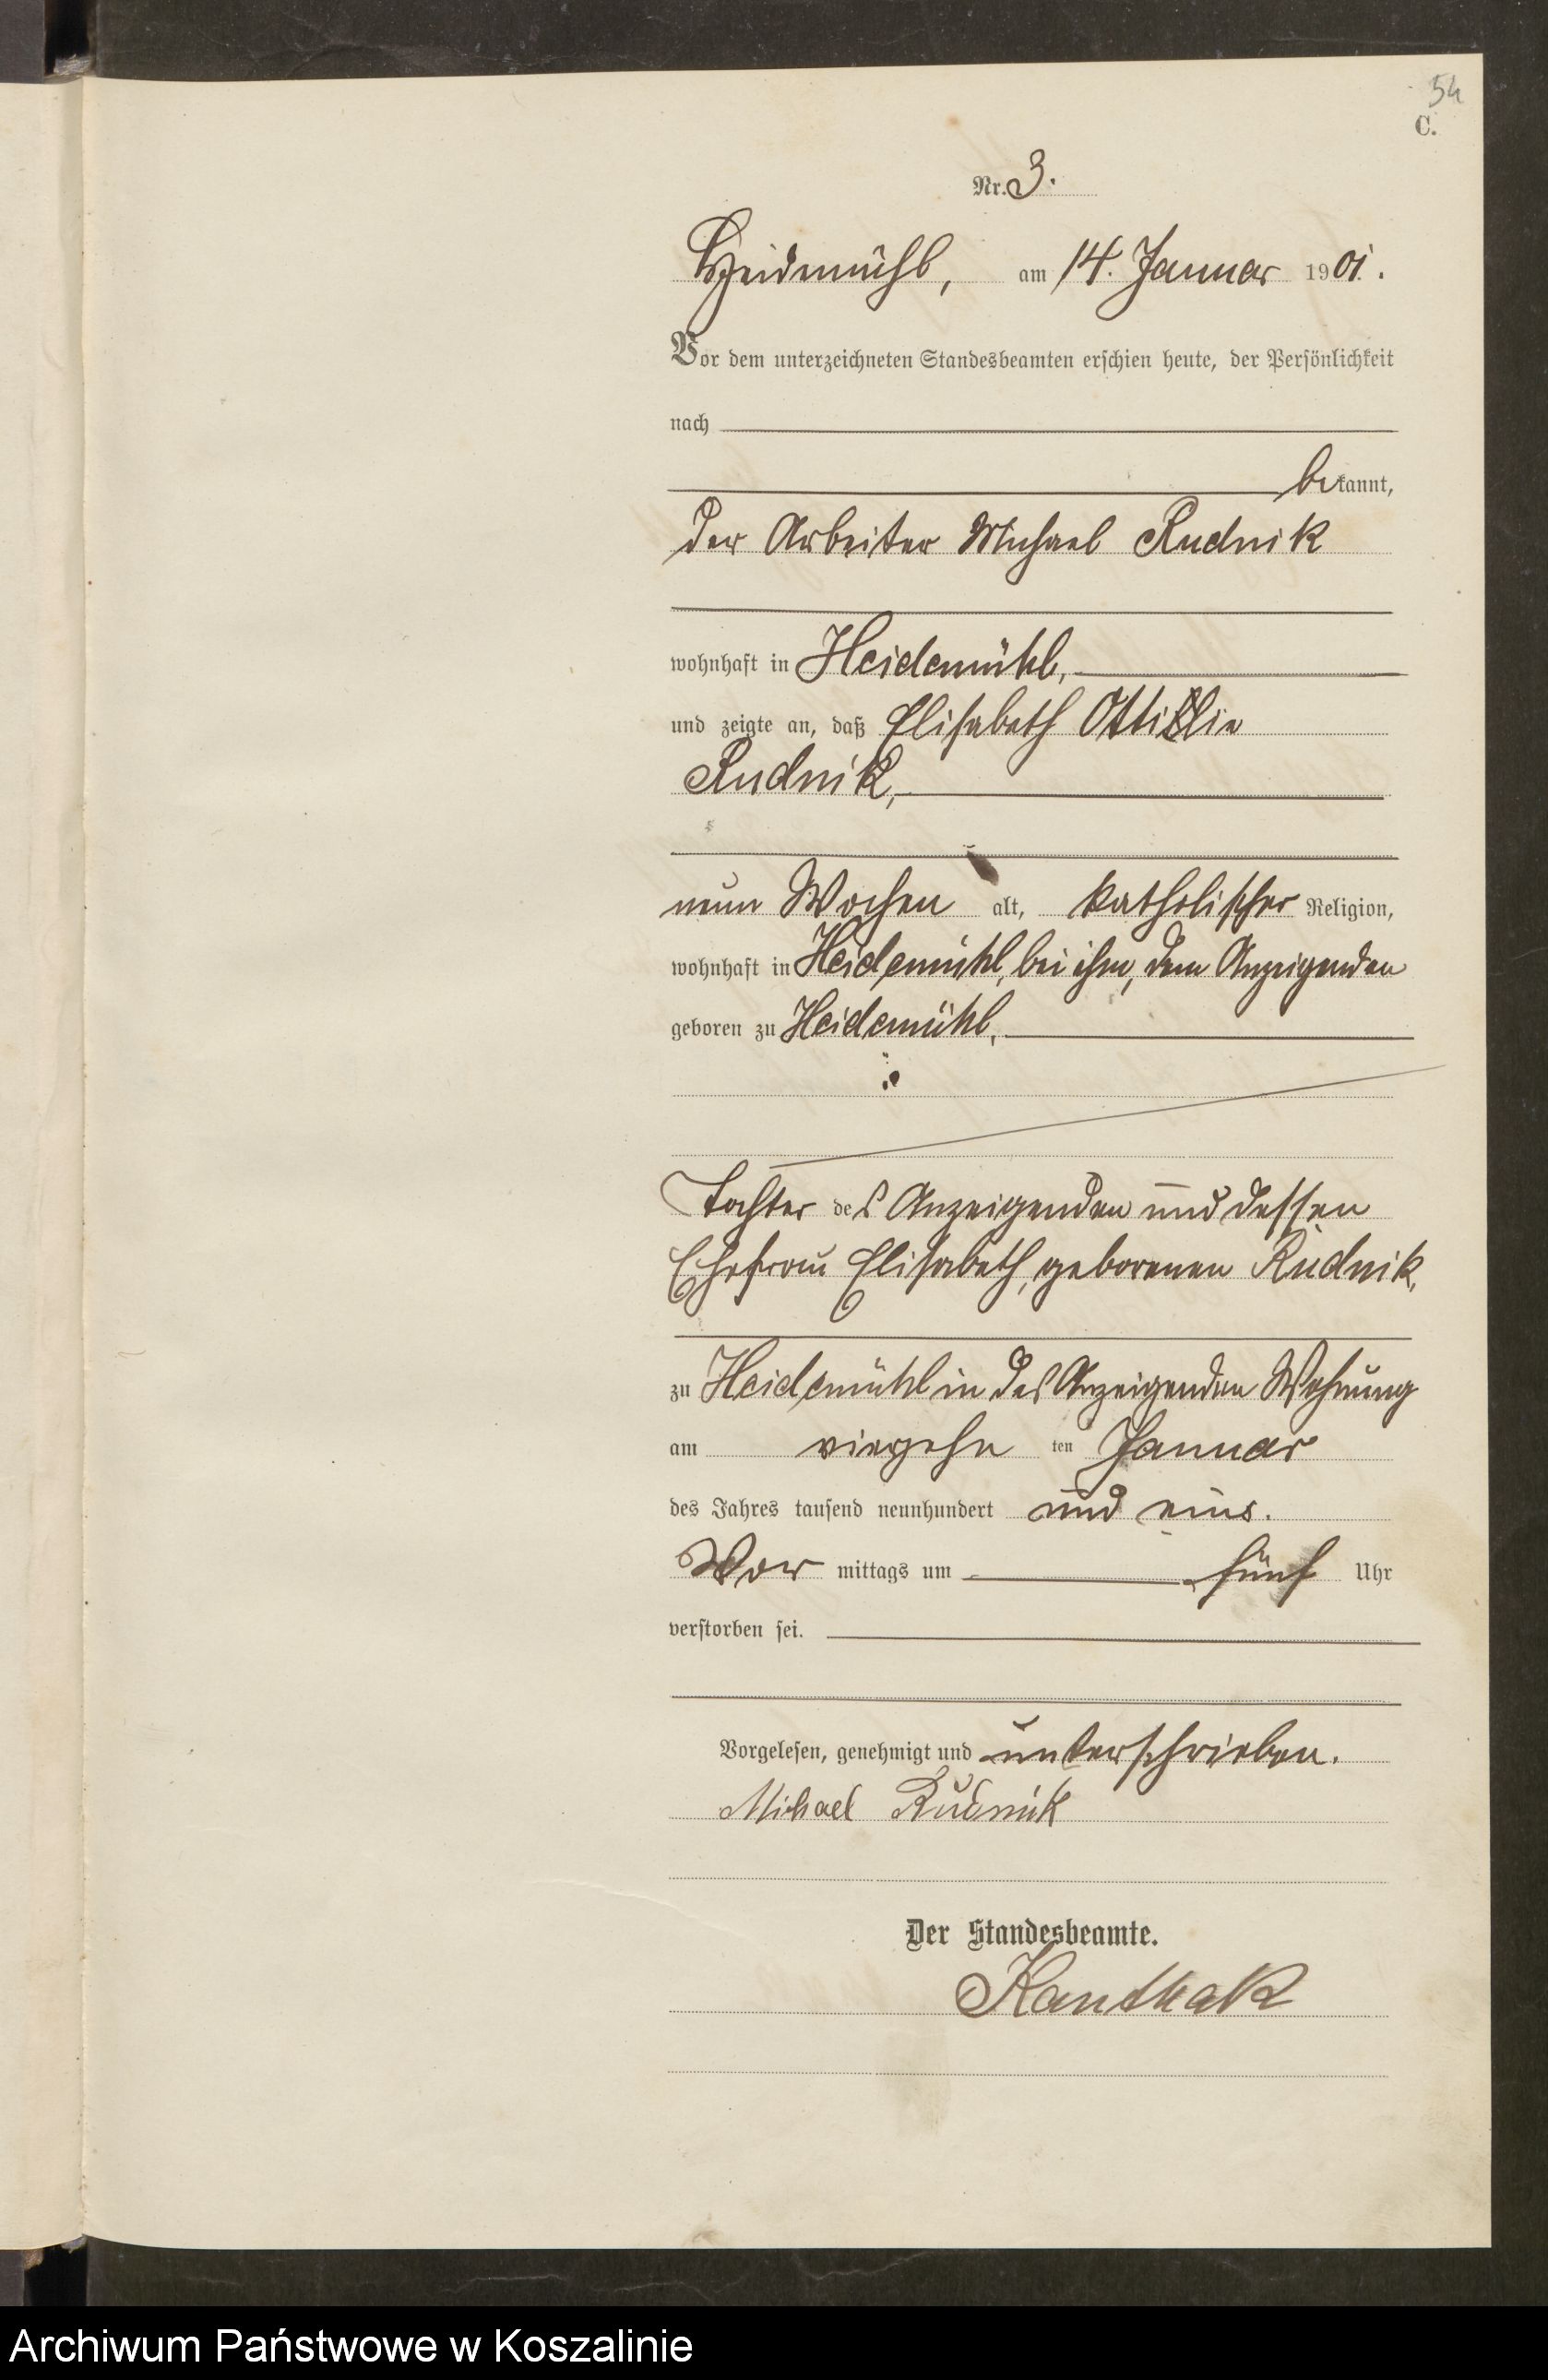 54
C.
Nr. 3.
Heidemühl, am 14. Januar 1901.
Vor dem unterzeichneten Standesbeamten erschien heute, der Persönlichkeit
nach
bekannt,
der Arbeiter Michael Rudnik
wohnhaft in Heidemühl,
und zeigte an, daß Elisabeth Ottilie
Rudnik,
neun Wochen alt, katholischer Religion,
wohnhaft in Heidemühl, bei ihm, dem Anzeigenden
geboren zu Heidemühl,
Tochter des Anzeigenden und dessen
Ehefrau Elisabeth, geborenen Rudnik,
zu Heidemühl in des Anzeigenden Wohnung
am vierzehnten Januar
des Jahres tausend neunhundert und eins.
Vor mittags um fünf Uhr
verstorben sei.
Vorgelesen, genehmigt und unterschrieben.
Michael Rudnik
Der Standesbeamte.
Kanthak
Archiwum Państwowe w Koszalinie